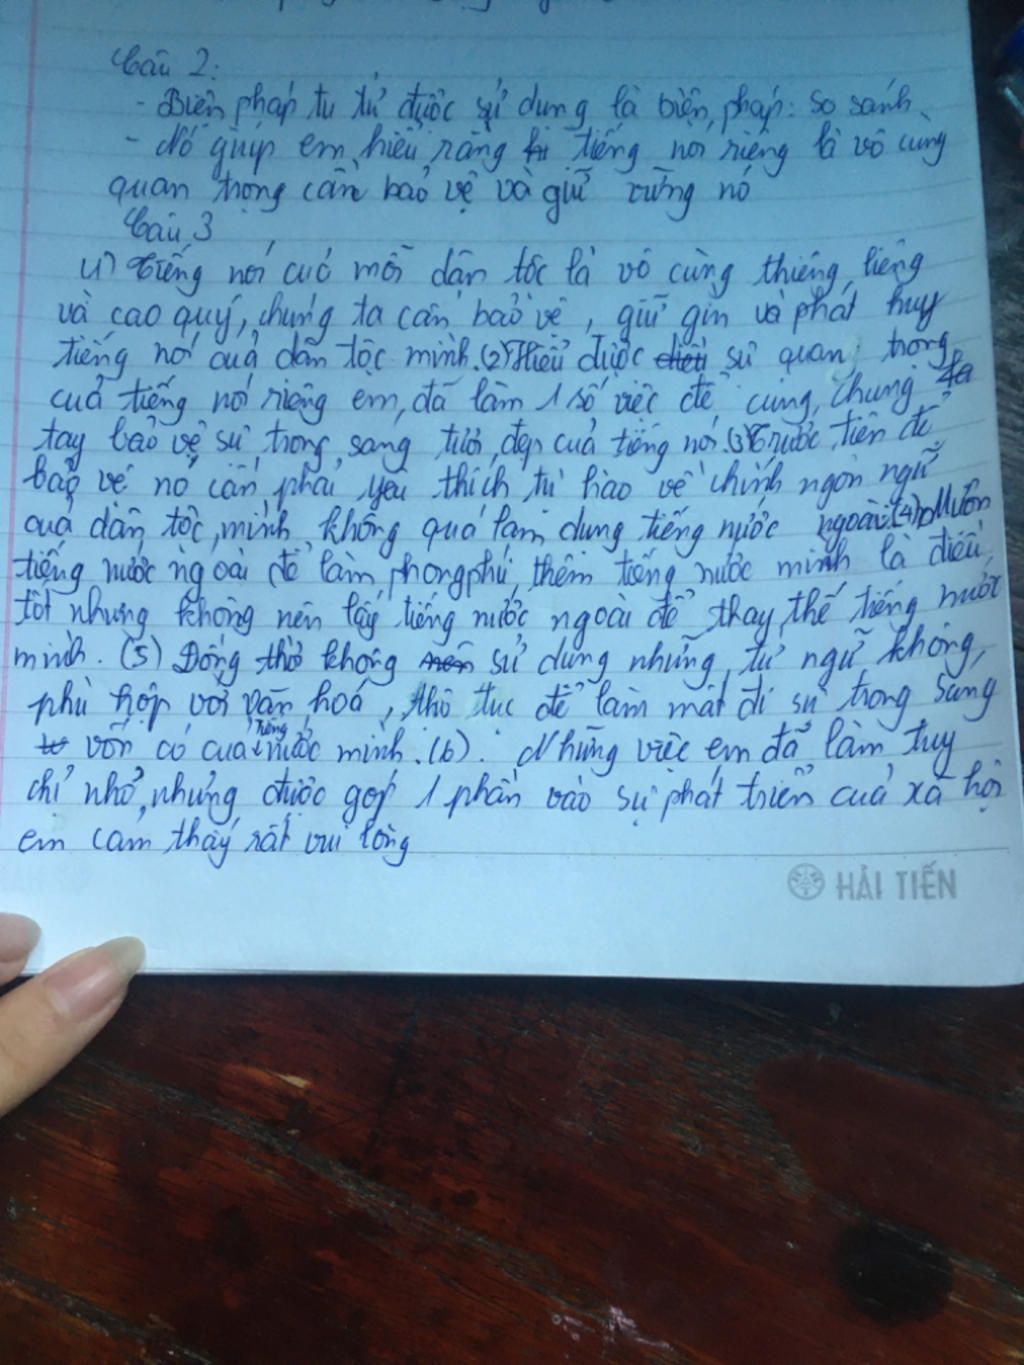 Câu 2:
- Biện pháp tu từ được sử dụng là biện pháp: so sánh
- Nó giúp em hiểu rằng tiếng nói riêng là vô cùng
quan trọng cần bảo vệ và giữ vững nó
Câu 3
(1) Tiếng nói cuả mỗi dân tộc là vô cùng thiêng liêng
và cao quý, chúng ta cần bảo vệ, giữ gìn và phát huy
tiếng nói cuả dân tộc mình. (2) Hiểu được sự quan trọng
cuả tiếng nói riêng em đã làm 1 số việc để cùng chung
tay bảo vệ sự trong sáng tươi đẹp cuả tiếng nói. (3) Trước tiên để
bảo vệ nó cần phải yêu thích tự hào về chính ngôn ngữ
cuả dân tộc mình không quá lạm dụng tiếng nước ngoài. (4) Mượn
tiếng nước ngoài để làm phong phú thêm tiếng nước mình là điều
tốt nhưng không nên lấy tiếng nước ngoài để thay thế tiếng nước
mình. (5) Đồng thời không sử dụng những từ ngữ không
phù hợp với văn hoá, thô tục để làm mất đi sự trong sáng
vốn có cuả tiếng nước mình. (6). Những việc em đã làm tuy
chỉ nhỏ, nhưng được góp 1 phần vào sự phát triển cuả xã hội
em cảm thấy rất vui lòng
HẢI TIẾN